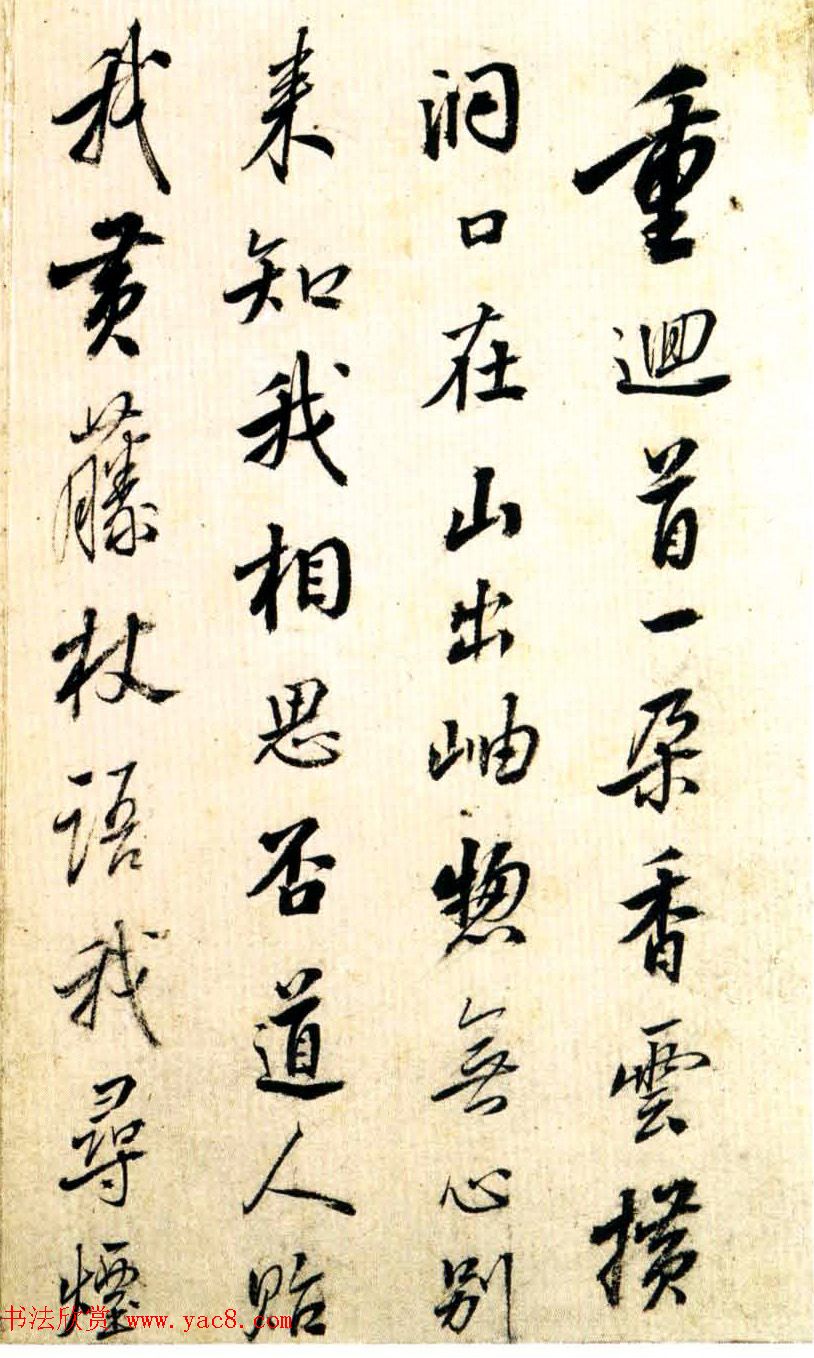 重迴首一朵香雲橫
洞口在山出岫惣無心別
来知我相思否道人貽
我黄藤杖語我尋煙
书法欣赏 www.yac8.com